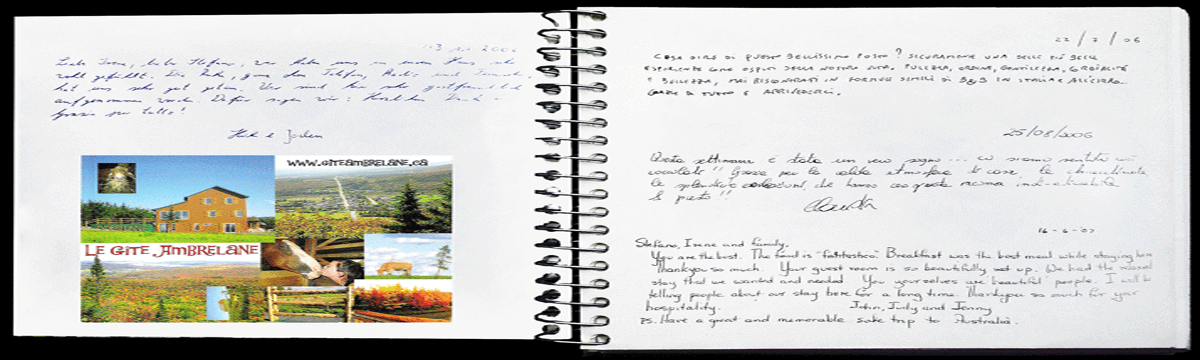 2006
wir
uns in
Haus
sehr
hat uns sehr gut getan. Wir sind hier sehr
aufgenommen
sagen wir: Herzlichen Dank
Grazie per tutto!
WWW.GITEAMBRELANE.CA
LE GITE AMBRELANE
22/7/06
COSA DIRE DI QUESTO BELLISSIMO POSTO? SICURAMENTE UNA DELLE PIÙ BELLE
ESPERIENZE COME OSPITI DELLA NOSTRA VITA. PULIZIA, ORDINE, GENTILEZZA, CORDIALITÀ
E BELLEZZA, MAI RISCONTRATI IN FORMULE SIMILI DI B&B IN ITALIA E ALL'ESTERO.
GRAZIE DI TUTTO E ARRIVEDERCI.
25/08/2006
Questa settimana è stata un vero sogno... ci siamo sentiti
coccolati!! Grazie per la calda atmosfera di casa, le chiacchierate
le splendide colazioni, che hanno reso questa vacanza indimenticabile
A presto!!
16-6-07
Stefano, Irene and family,
You are the best. The food is "fantastico". Breakfast was the best meal while staying here
Thankyou so much. Your guest room is so beautifully set up. We had the relaxed
stay that we wanted and needed. You yourselves are beautiful people. I will be
telling people about our stay here for a long time. Thankyou so much for your
hospitality. John, Judy and Jenny
PS. Have a great and memorable safe trip to Australia.